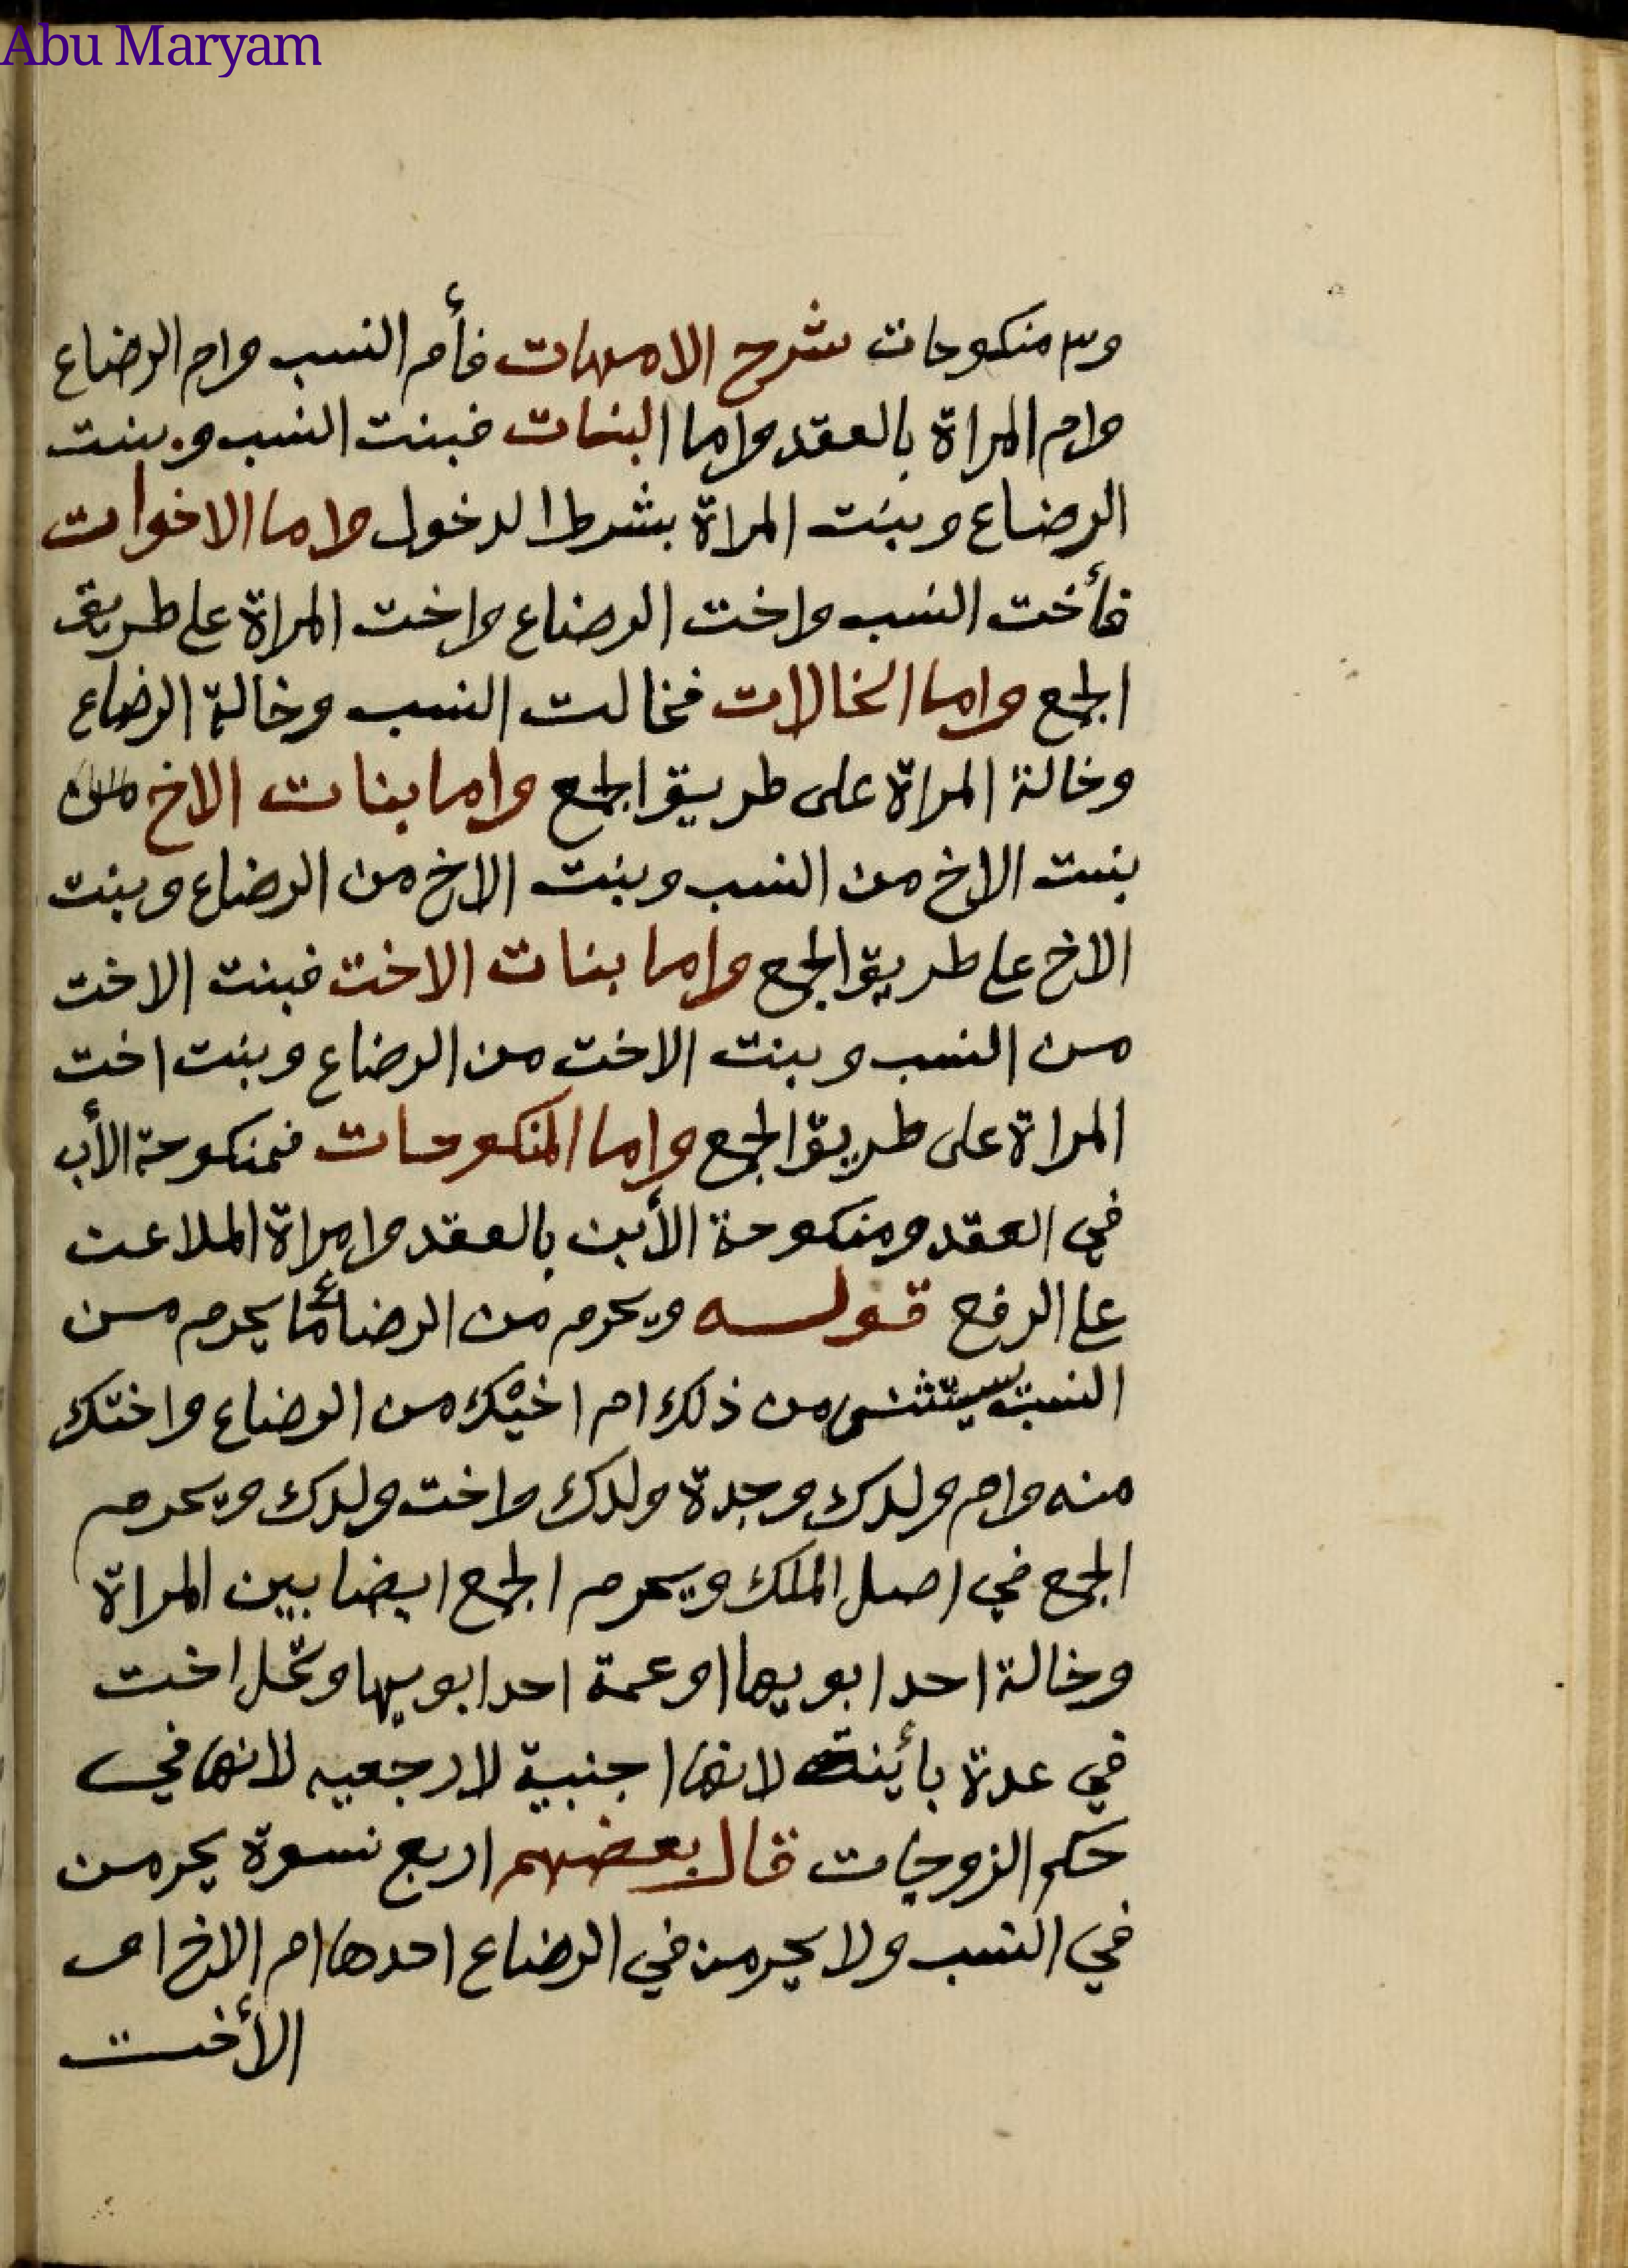 Abu Maryam
و٣ منكوحات شرح الامهات فأم النسب وام الرضاع
وام المراة بالعقد واما البنات فبنت النسب وبنت
الرضاع وبنت المراة بشرط الدخول واما الاخوات
فأخت النسب واخت الرضاع واخت المراة على طريق
الجمع واما الخالات فخالت النسب وخالة الرضاع
وخالة المراة على طريق الجمع واما بنات الاخ
بنت الاخ من النسب وبنت الاخ من الرضاع وبنت
الاخ على طريق الجمع واما بنات الاخت فبنت الاخت
من النسب وبنت الاخت من الرضاع وبنت اخت
المراة على طريق الجمع واما المنكوحات فمنكوحة الأب
في العقد ومنكوحة الأبن بالعقد وامراة الملاعن
على الرفع قوله ويحرم من الرضاع ما يحرم من
النسب يستثنى من ذلك ام اخيك من الرضاع واختك
منه وام ولدك وجدة ولدك واخت ولدك ويحرم
الجمع في اصل الملك ويحرم الجمع ايضا بين المراة
وخالة احد ابويها او عمة احد ابويها وتحل اخت
في عدة بأينة لانها اجنبية لا رجعيه لانها في
حكم الزوجات قال بعضهم اربع نسوة يحرمن
في النسب ولا يحرمن في الرضاع احدها ام الاخ او
الأخت